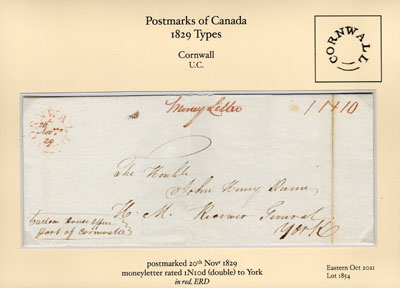 Postmarks of Canada
1829 Types
Cornwall
U.C.
CORNWALL
CORNWALL
20
Novr
29
Money Letter
1 N 10
The Honble
John Henry Dunn
H. M. Receiver General
York
Custom House Office
Port of Cornwall
postmarked 20th Novr 1829
moneyletter rated 1N10d (double) to York
in red, ERD
Eastern Oct 2021
Lot 1854